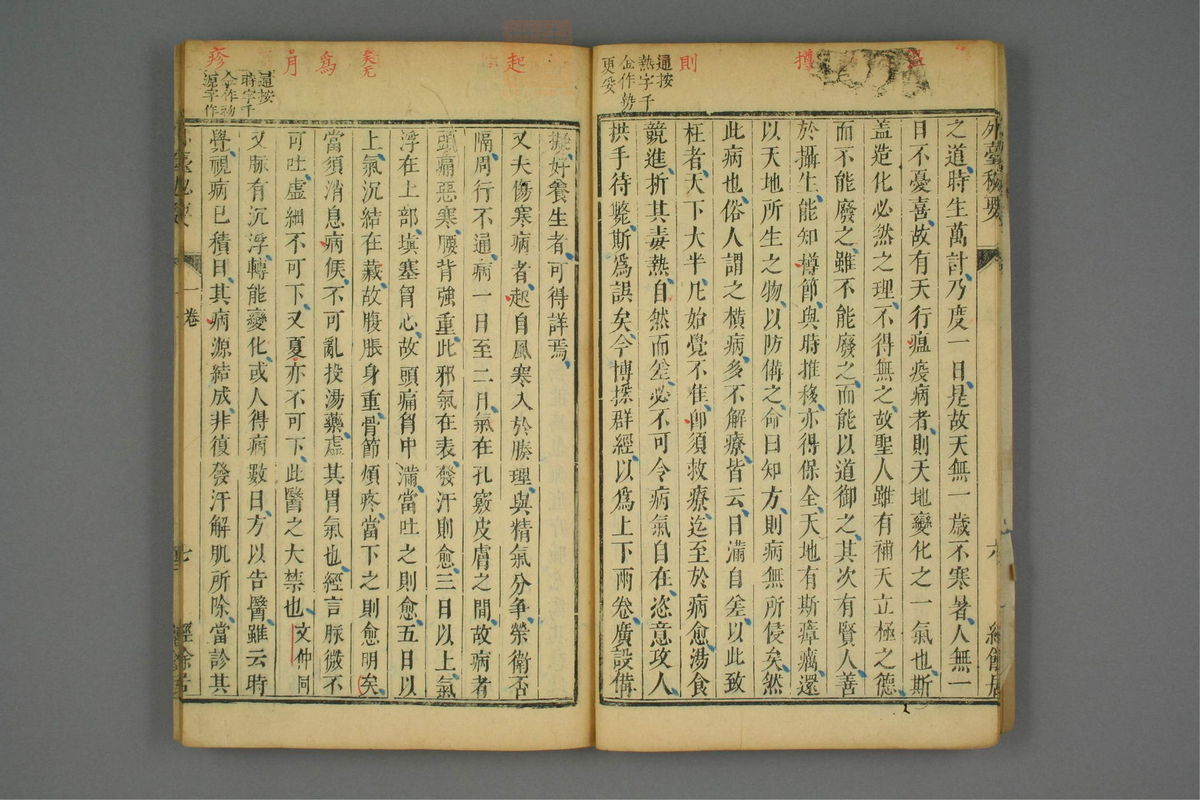 瘟
撙
則
通按
熱字千
金作勢
更妥
外臺秘要
六
經餘居
之道、時生萬計、乃度一日、是故天無一歲不寒暑、人無一
日不憂喜、故有天行瘟疫病者、則天地變化之一氣也、斯
蓋造化必然之理、不得無之、故聖人雖有補天立極之德、
而不能廢之、雖不能廢之、而能以道御之、其次有賢人善
於攝生、能知撙節、與時推移、亦得保全、天地有斯瘴癘、還
以天地所生之物、以防備之、命曰知方、則病無所侵矣、然
此病也、俗人謂之橫病、多不解療、皆云日滿自差、以此致
枉者、天下大半、凡始覺不隹、卽須救療、迄至於病愈、湯食
競進、折其毒熱、自然而差、必不可令病氣自在、恣意攻人、
拱手待斃、斯爲誤矣、今博採群經、以爲上下兩卷、廣設備
起
爲
月
疹
通按
時字千
金作初
源字作
擬好養生者、可得詳焉、
又夫傷寒病者、起自風寒、入於腠理、與精氣分爭、榮衛否
隔、周行不通、病一日至二日、氣在孔竅皮膚之間、故病者
頭痛惡寒、腰背強重、此邪氣在表、發汗則愈、三日以上、氣
浮在上部、塡塞胷心、故頭痛胷中滿、當吐之則愈、五日以
上、氣沉結在藏、故腹脹身重、骨節煩疼、當下之則愈、明矣、
當須消息病候、不可亂投湯藥、虛其胃氣也、經言脈微不
可吐、虛細不可下、又夏亦不可下、此醫之大禁也、文仲同
又脈有沉浮、轉能變化、或人得病數日、方以告醫、雖云時
覺、視病已積日、其病源結成、非復發汗解肌所除、當診其
一卷
七
經餘居